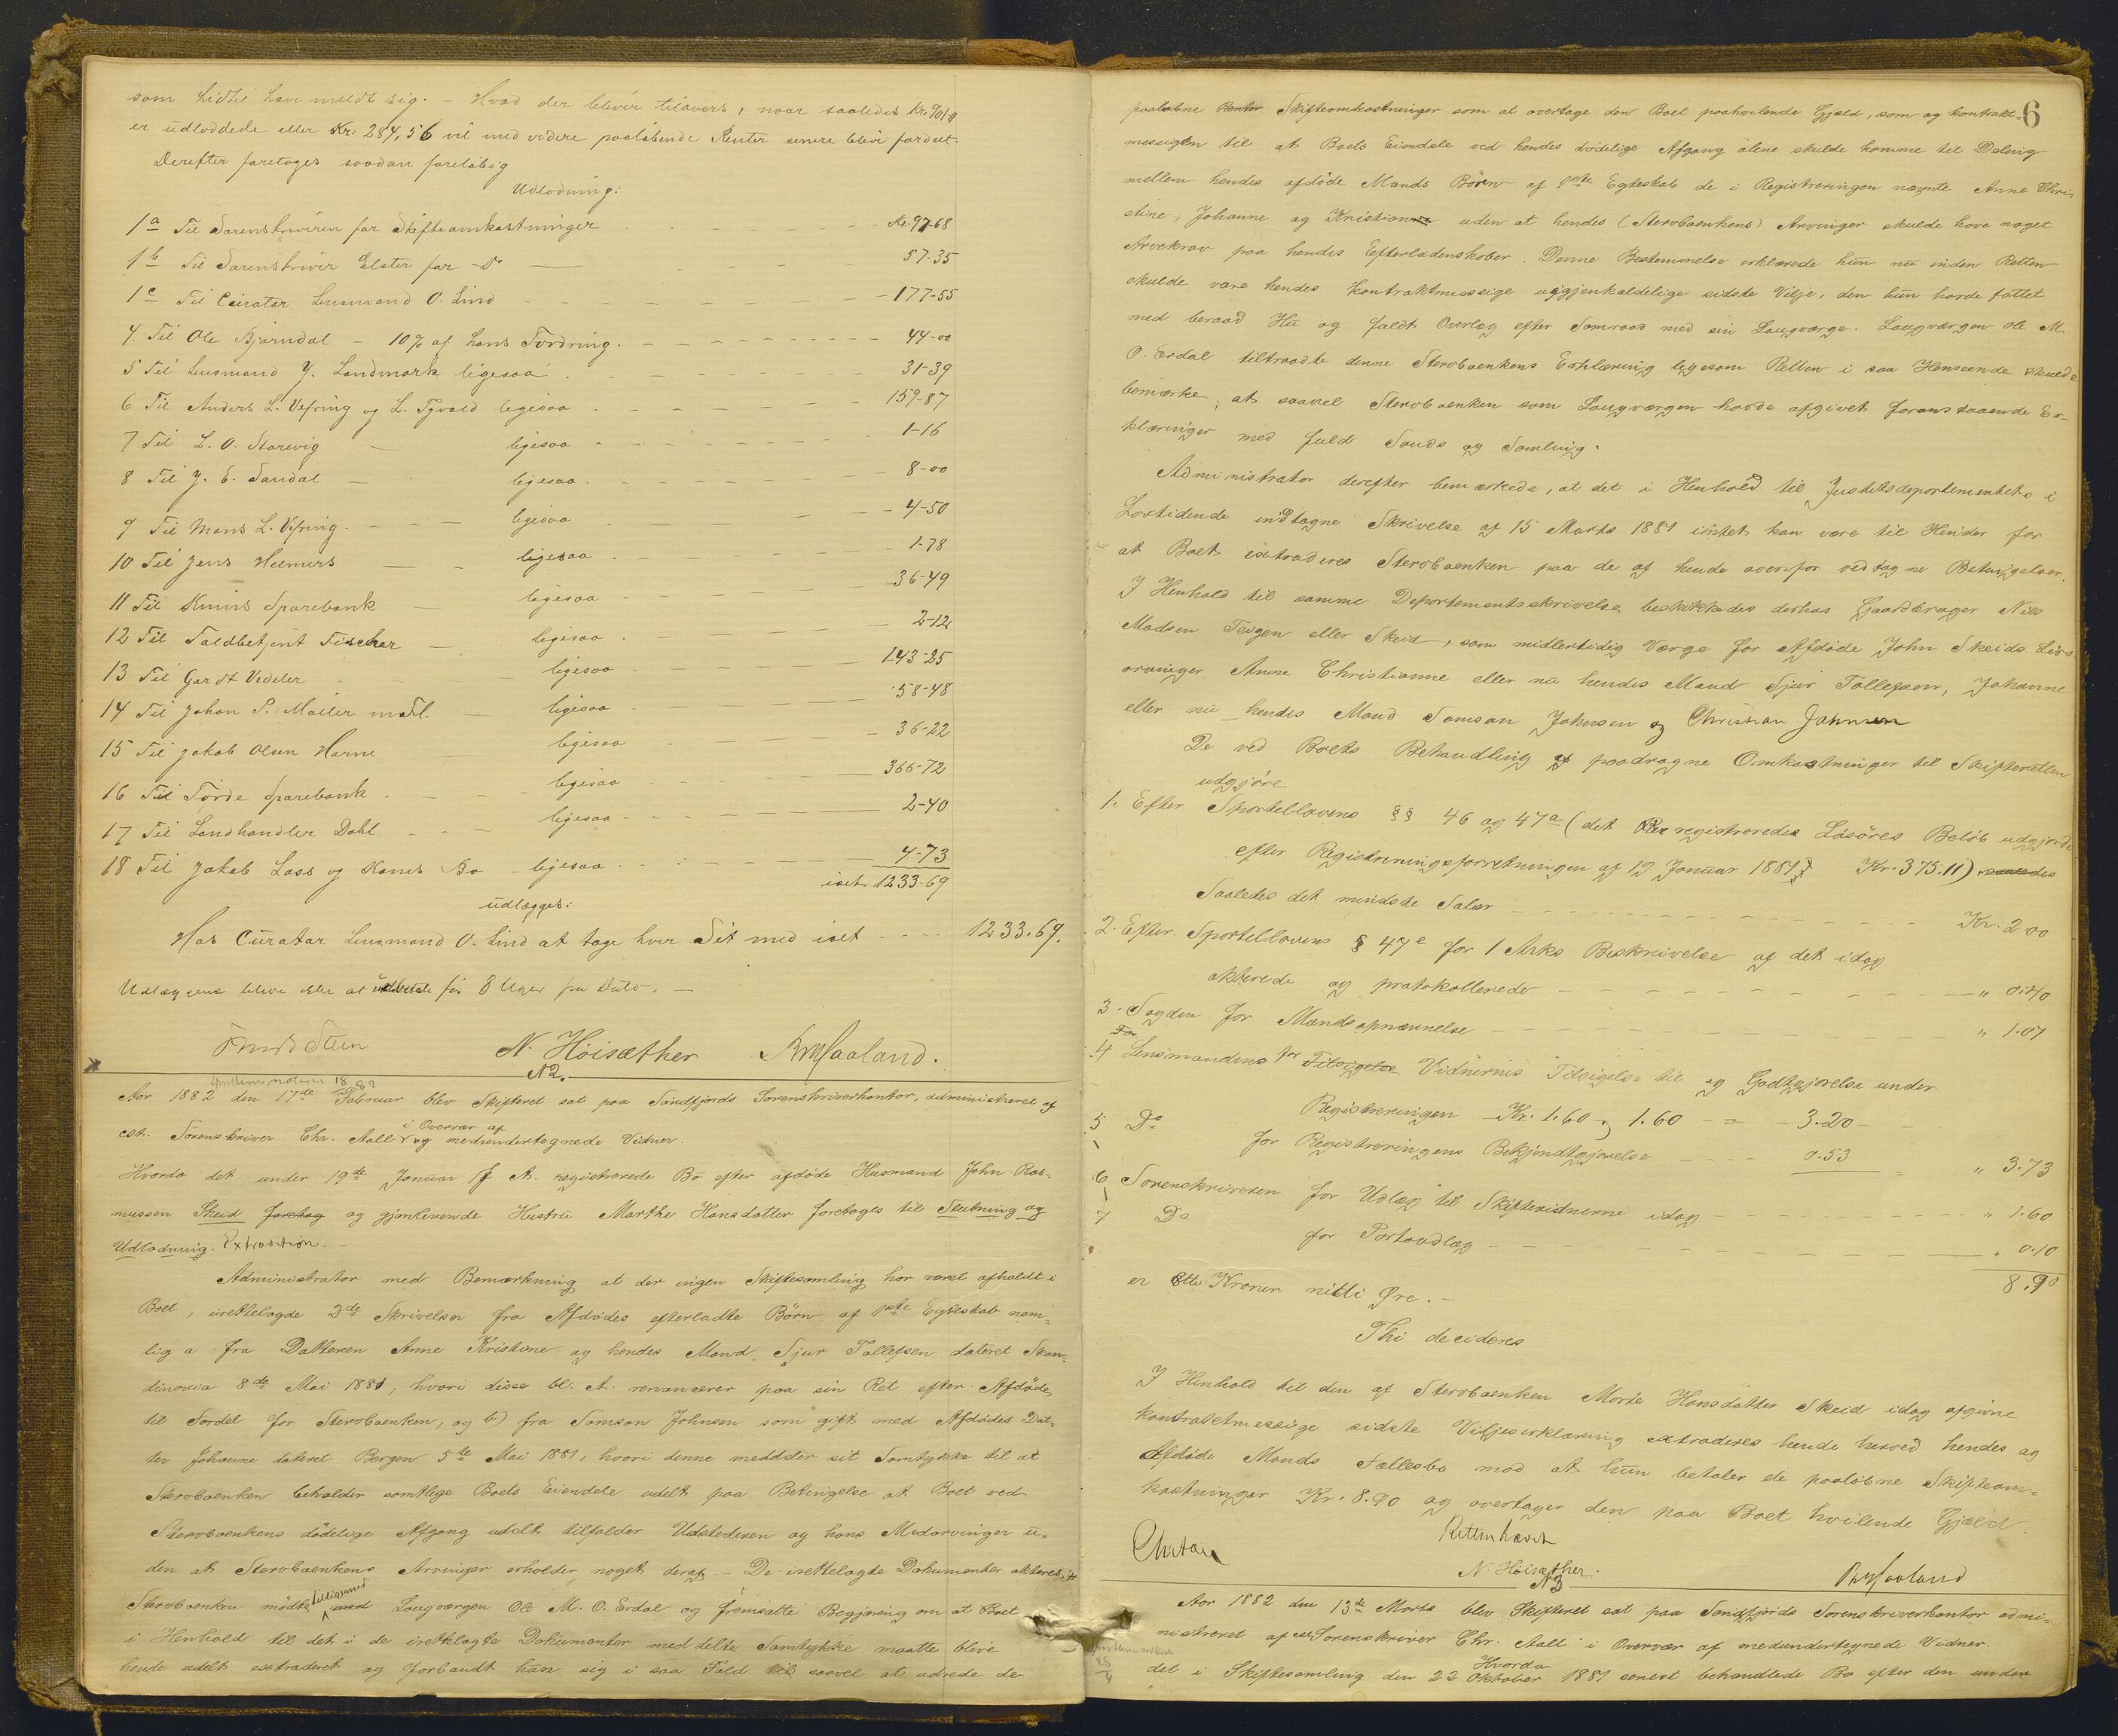 som hidtil have meldt sig. - Hvad der bliver tilovers, naar saaledes Kr. 901,11
er udloddede eller Kr: 284,56 vil med videre paaløbende Renter senere blive fordelt.
Derefter foretoges saadan foreløbig
Udlodning:
1a Til Sorenskriveren for Skifteomkostninger - - - Kr. 97-68
1b Til Sorenskriver Elster for - Do - - - 57-35
1c Til Curator Lensmand O. Lind - - - 177-55
4 Til Ole Bjørndal - 10% af hans Fordring. - - - 44-00
5 Til Lensmand J. Landmark ligesaa - - - 31-39
6 Til Anders L. Vefring og L. Tqvald ligesaa - - - 159-87
7 Til L. O. Starevig - ligesaa - - - 1-16
8 Til J. E. Sandal - ligesaa - - - 8-00
9 Til Mons L. Vefring. - - - ligesaa - - - 4-50
10 Til Jens Helmers - - ligesaa - - - 1-78
11 Til Kinns Sparebank - ligesaa - - - 36-49
12 Til Toldbetjent Fischer - ligesaa - - - 2-12
13 Til Gerdt Vedeler - ligesaa - - - 143-25
14 Til Johan P. Møller m. Fl. - ligesaa - - - 58-48
15 Til Jakob Olsen Horne - ligesaa - - - 36-22
16 Til Førde Sparebank. - ligesaa - - - 366-72
17 Til Landhandler Dahl - - - ligesaa - - - 2-40
18 Til Jakob Lass og Kones Bo - ligesaa - - - 4-73
ialt 1233.69
udlægges:
Hos Curator Lensmand O. Lind at tage hver Sit med ialt - - - 1233.69.
Udlæggene blive ikke at udbetale før 8 Uger fra Dato. -
N. Høisæther
R M Saaland.
N2.
Aar 1882 den 17de Februar blev Skifteret sat paa Søndfjords Sorenskriverkontor, administreret af
cst. Sorenskriver Chr. Aall i Overvær af og medundertegnede Vidner.
Hvorda det under 19de Januar f A. registrerede Bo efter afdøde Husmand John Ras-
mussen Skeid foretag og gjenlevende Hustru Marthe Hansdatter foretoges til Slutning og
Udlodning. Extradition -
Administrator med Bemærkning at der ingen Skiftesamling har været afholdt i
Boet, irettelagde 2de Skrivelser fra Afdødes efterladte Børn af 1ste Egteskab nem-
lig a fra Datteren Anne Kristine og hendes Mand Sjur Tollefsen dateret Skan-
dinavia 8de Mai 1881, hvori disse bl. A. renoncerer paa sin Ret efter Afdøde
til Fordel for Stervboenken, og b) fra Samson Johnsen som gift med Afdødes Dat-
ter Johanne dateret Bergen 5te Mai 1881, hvori denne meddeler sit Samtykke til at
Stervboenken beholder samtlige Boets Eiendele udelt paa Betingelse at Boet ved
Stervboenkens dødelige Afgang udelt tilfalder Udstederen og hans Medarvinger u-
den at Stervboenkens Arvinger erholder noget deraf. - De irettelagte Dokumenter akteres.
Stervboenken mødte tilligemed med Laugværgen Ole M. O. Erdal og fremsatte Begjæring om at Boet
i Henhold til det i de irettelagte Dokumenter meddelte Samtykke maatte blive
hende udelt extraderet og forbandt hun sig i saa Fald til saavel at udrede de
6
paaløbne Renter Skifteomkostninger som at overtage den Boet paahvilende Gjæld, som og kontrakt-
messigen til at Boets Eiendele ved hendes dødelige Afgang alene skulde komme til Deling
mellem hendes afdøde Mands Børn af 1ste Egteskab de i Registreringen nævnte Anne Chri-
stine, Johanne og Kristian uden at hendes (Stervboenkens) Arvinger skulde have noget
Arvekrav paa hendes Efterladenskaber. Denne Bestemmelse erklærede hun nu inden Retten
skulde være hendes kontraktmæssige uigjenkaldelige sidste Vilje, den hun havde fattet
med beraad Hu og fuldt Overlæg efter Samraad med sin Laugværge. Laugværgen Ole M.
O. Erdal tiltraadte denne Stervboenkens Erklæring ligesom Retten i saa Henseende skulde
bemærke, at saavel Stervboenken som Laugværgen havde afgivet foranstaaende Er-
klæringer med fuld Sands og Samling.
Administrator derefter bemærkede, at det i Henhold til Justitsdepartementets i
Lovtidende indtagne Skrivelse af 15 Marts 1881 intet kan være til Hinder for
at Boet extraderes Stervboenken paa de af hende ovenfor vedtagne Betingelser.
I Henhold til samme Departementsskrivelse beskikkedes derhos Gaardbruger Nils
Madsen Teigen eller Skeid, som midlertidig Værge for Afdøde John Skeids Livs
arvinger Anne Christianne eller nu hendes Mand Sjur Tollefsen, Johanne
eller nu hendes Mand Samson Johnsen og Christian Johnsen
De ved Boets Behandling af paadragne Omkostninger til Skifteretten
udgjøre
1. Efter Sportellovens §§ 46 og 47a (det registreredes Løsøres Beløb udgjorde
efter Registreringsforretningen af 19 Januar 1881 Kr. 375.11) saaledes
Saaledes det mindste Salær - - - Kr. 2.00
2. Efter Sportellovens § 47e for 1 Arks Beskrivelse af det idag
akterede og protokollerede - - - " 0.40
3. Fogden for Mandsopnævnelse - - - " 1.07
4 Lensmandens for Tilsigelse Vidnernes Tilsigelse til og Godtgjørelse under
Registreringen Kr. 1.60 og 1.60 - = - 3.20 -
5 Do for Registreringens Bekjendtgjørelse - - - 0.53 = " 3.73
6 Sorenskriveren for Udlæg til Skiftevidnerne idag - - - " 1.60
7 Do for Portoudlæg - - - " 0.10
er Otte Kroner nitti Øre. - 8.90
Thi decideres
I Henhold til den af Stervboenken Marte Hansdatter Skeid idag afgivne
kontraktmessige sidste Viljeserklæring extraderes hende herved hendes og
Afdøde Mands Fællesbo mod at hun betaler de paaløbne Skifteom-
kostninger Kr. 8.90 og overtager den paa Boet hvilende Gjæld.
Retten hævet
Chr Aall
N. Høisæther.
R M Saaland
N3
Aar 1882 den 13de Marts blev Skifteret sat paa Søndfjords Sorenskriverkontor admi-
nistreret af cst Sorenskriver Chr. Aall i Overvær af medundertegnede Vidner.
Hvorda
det i Skiftesamling den 22 Oktober 1881 senest behandlede Bo efter den under